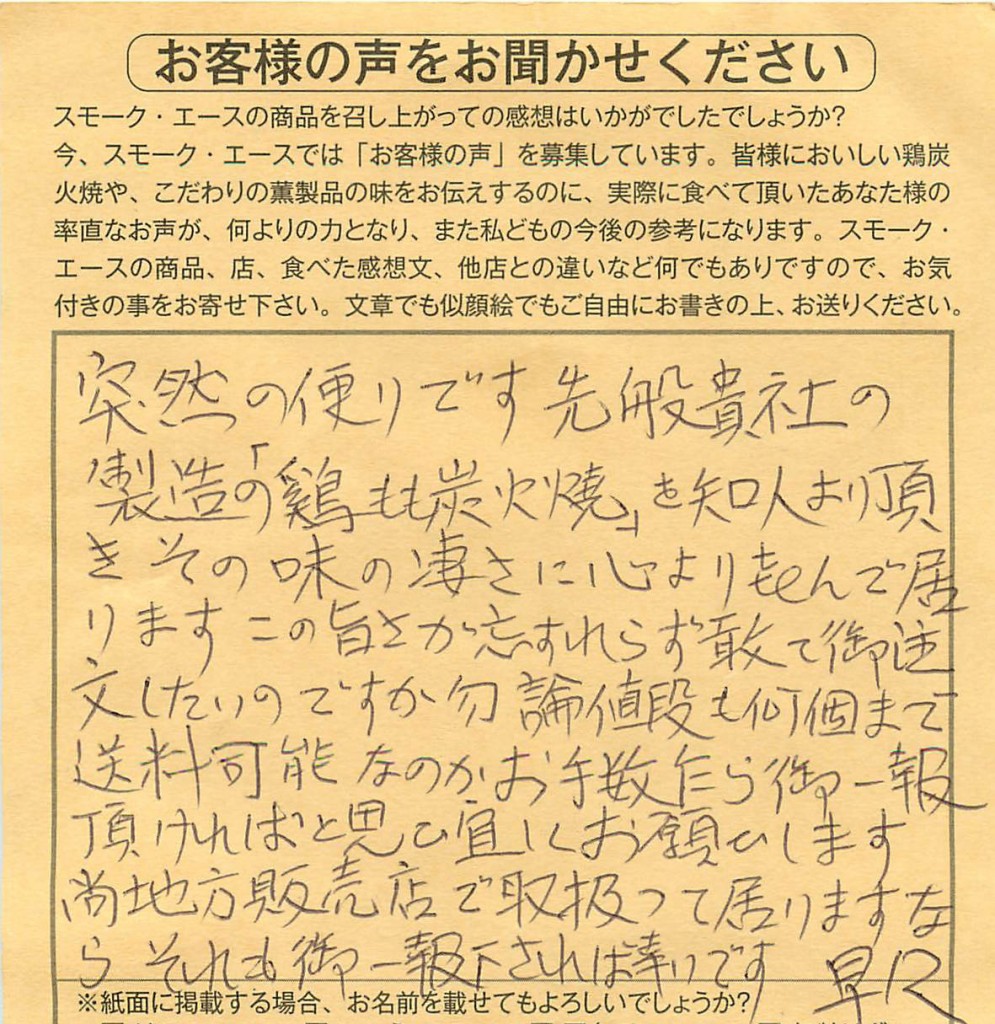 お客様の声をお聞かせください
スモーク・エースの商品を召し上がっての感想はいかがでしたでしょうか？
今、スモーク・エースでは「お客様の声」を募集しています。皆様においしい鶏炭
火焼や、こだわりの薫製品の味をお伝えするのに、実際に食べて頂いたあなた様の
率直なお声が、何よりの力となり、また私どもの今後の参考になります。スモーク・
エースの商品、店、食べた感想文、他店との違いなど何でもありですので、お気
付きの事をお寄せ下さい。文章でも似顔絵でもご自由にお書きの上、お送りください。
突然の便りです先般貴社の
製造の「鶏もも炭火焼」を知人より頂
きその味の凄さに心より んで居
りますこの旨さが忘すれらず敢て御注
文したいのですが勿論値段も何個まで
送料可能なのかお手数乍ら御一報
頂ければと思ひ宜しくお願ひします
尚地方販売店で取扱って居りますな
らそれも御一報下されば幸いです 早
※紙面に掲載する場合、お名前を載せてもよろしいでしょうか？